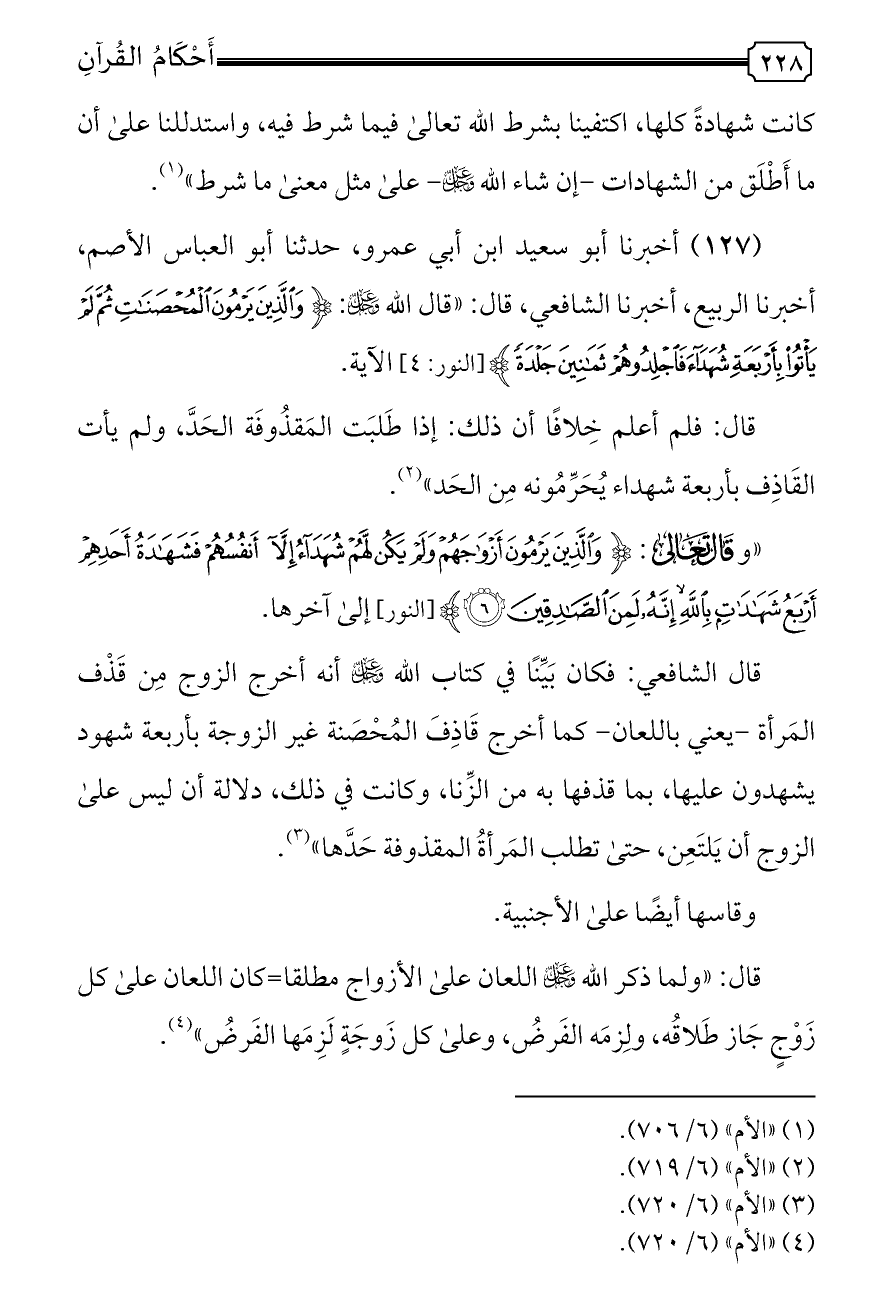 ٢٢٨ أَحْكَامُ القُرآنِ
كانت شهادةً كلها، اكتفينا بشرط الله تعالىٰ فيما شرط فيه، واستدللنا علىٰ أن
ما أَطْلَق من الشهادات -إن شاء الله عَزَّوَجَلَّ- علىٰ مثل معنىٰ ما شرط»(١).
(١٢٧) أخبرنا أبو سعيد ابن أبي عمرو، حدثنا أبو العباس الأصم،
أخبرنا الربيع، أخبرنا الشافعي، قال: «قال الله عَزَّوَجَلَّ: ﴿وَٱلَّذِينَ يَرْمُونَ ٱلْمُحْصَنَٰتِ ثُمَّ لَمْ
يَأْتُوا۟ بِأَرْبَعَةِ شُهَدَآءَ فَٱجْلِدُوهُمْ ثَمَٰنِينَ جَلْدَةً﴾ [النور: ٤] الآية.
قال: فلم أعلم خِلافًا أن ذلك: إذا طَلبَت المَقذُوفَة الحَدَّ، ولم يأت
القَاذِف بأربعة شهداء يُحَرِّمُونه مِن الحَد»(٢).
«و قَالَ تَعَالَىٰ: ﴿وَٱلَّذِينَ يَرْمُونَ أَزْوَٰجَهُمْ وَلَمْ يَكُن لَّهُمْ شُهَدَآءُ إِلَّآ أَنفُسُهُمْ فَشَهَٰدَةُ أَحَدِهِمْ
أَرْبَعُ شَهَٰدَٰتٍۭ بِٱللَّهِ ۙ إِنَّهُۥ لَمِنَ ٱلصَّٰدِقِينَ ٦﴾ [النور] إلىٰ آخرها.
قال الشافعي: فكان بَيِّنًا في كتاب الله عَزَّوَجَلَّ أنه أخرج الزوج مِن قَذْف
المَرأة -يعني باللعان- كما أخرج قَاذِفَ المُحْصَنة غير الزوجة بأربعة شهود
يشهدون عليها، بما قذفها به من الزِّنا، وكانت في ذلك، دلالة أن ليس علىٰ
الزوج أن يَلتَعِن، حتىٰ تطلب المَرأةُ المقذوفة حَدَّها»(٣).
وقاسها أيضًا علىٰ الأجنبية.
قال: «ولما ذكر الله عَزَّوَجَلَّ اللعان علىٰ الأزواج مطلقا=كان اللعان علىٰ كل
زَوْجٍ جَاز طَلاقُه، ولِزمَه الفَرضُ، وعلىٰ كل زَوجَةٍ لَزِمَها الفَرضُ»(٤).
(١) «الأم» (٦/ ٧٠٦).
(٢) «الأم» (٦/ ٧١٩).
(٣) «الأم» (٦/ ٧٢٠).
(٤) «الأم» (٦/ ٧٢٠).